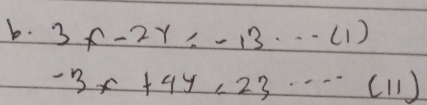 b. 3x - 2y = -13 ... (1)
-3x + 4y = 23 .... (11)